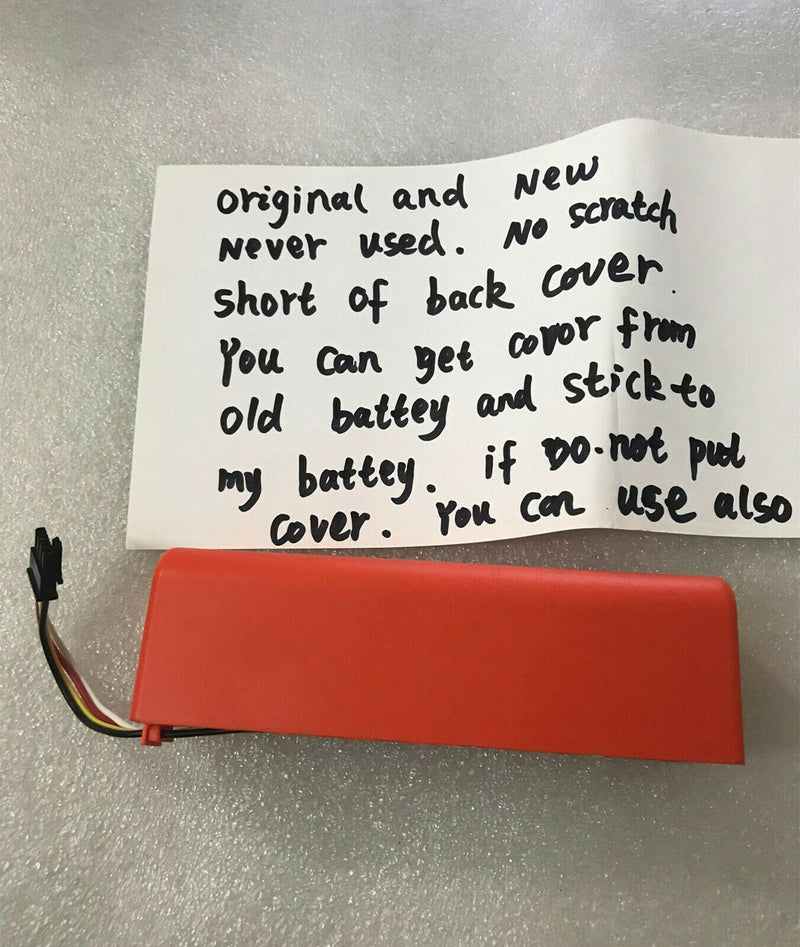 original and New
Never used. No scratch
short of back cover.
You can get covor from
old battey and stick to
my battey. if DO.not put
cover. You can use also